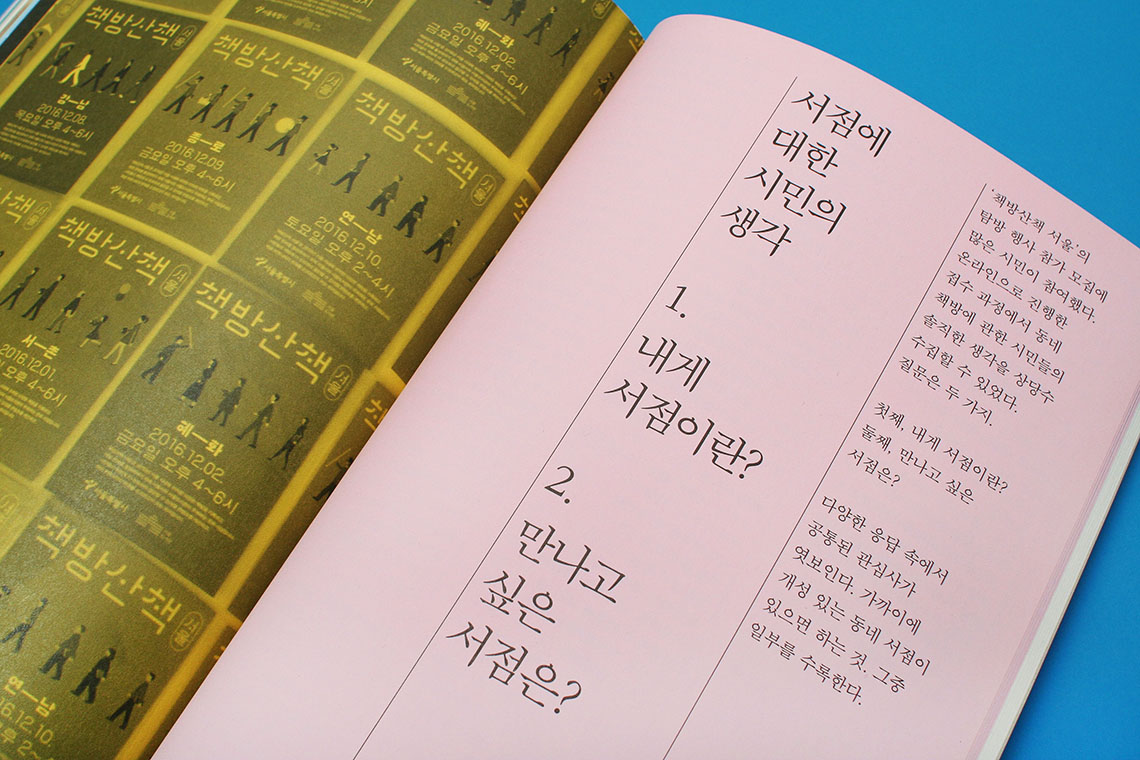 책방산책 서울
강—남
2016.12.08.
목요일 오후 4~6시
서울특별시
책방산책 서울
종—로
2016.12.09.
금요일 오후 4~6시
서울특별시
혜—화
2016.12.02.
금요일 오후 4~6시
서울특별시
책방산책 서울
연—남
2016.12.10.
토요일 오후 2~4시
서울특별시
책방산책 서울
서—촌
2016.12.01.
오후 4~6시
책방산책 서울
혜—화
2016.12.02.
금요일 오후 4~6시
서울특별시
책방산책 서울
연—남
2016.12.10.
오후 2~4시
서점에
대한
시민의
생각
1.
내게
서점이란?
2.
만나고
싶은
서점은?
‘책방산책 서울’의
탐방 행사 참가 모집에
많은 시민이 참여했다.
온라인으로 진행한
접수 과정에서 동네
책방에 관한 시민들의
솔직한 생각을 상당수
수집할 수 있었다.
질문은 두 가지.
첫째, 내게 서점이란?
둘째, 만나고 싶은
서점은?
다양한 응답 속에서
공통된 관심사가
엿보인다. 가까이에
개성 있는 동네 서점이
있으면 하는 것. 그중
일부를 수록한다.